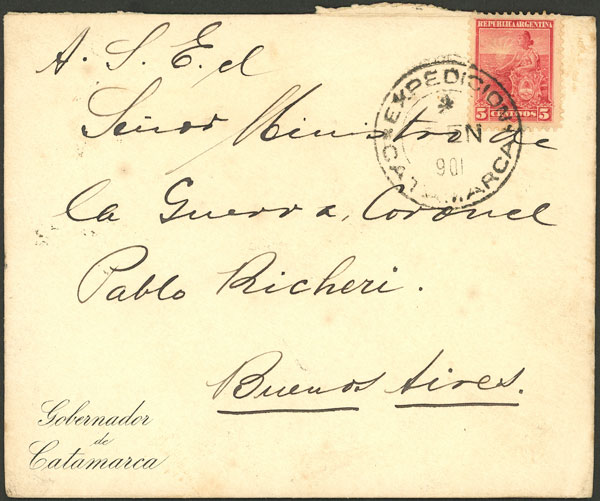 REPUBLICA ARGENTINA
5 CENTAVOS 5
EXPEDICION
EN
901
CATAMARCA
A. S. E. el
Señor Ministro de
la Guerra, Coronel
Pablo Richeri.
Buenos Aires.
Gobernador
de
Catamarca